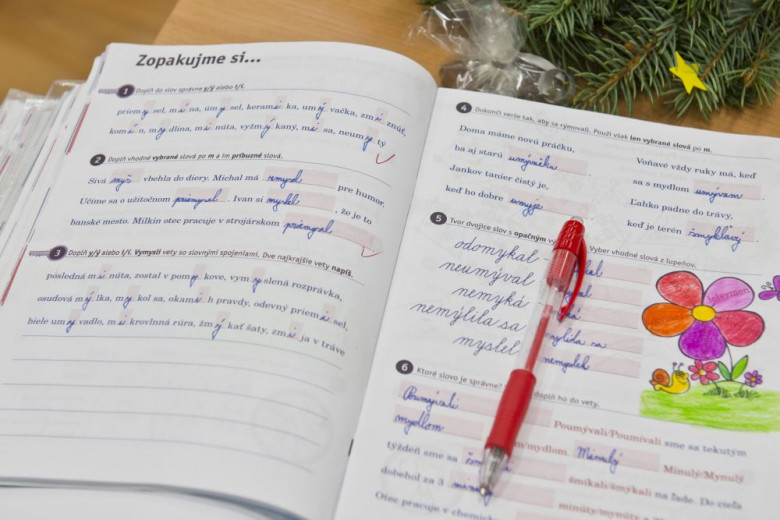 Zopakujme si...
1 Doplň do slov správne y/ý alebo i/í.
priemysel, mína, úmysel, keramika, umývačka, zmiznúť,
komín, mydlina, minúta, vyžmýkaný, misa, neumytý
2 Doplň vhodné vybrané slová po m a im príbuzné slová.
Sivá myš vbehla do diery. Michal má zmysel pre humor.
Učíme sa o užitočnom priemysel. Ivan si myslel, že je to
banské mesto. Milkin otec pracuje v strojárskom priemysel
3 Doplň y/ý alebo i/í. Vymysli vety so slovnými spojeniami. Dve najkrajšie vety napíš.
posledná minúta, zostal v pomykove, vymyslená rozprávka,
osudová mýlka, mykol sa, okamih pravdy, odevný priemysel,
biele umývadlo, mikrovlnná rúra, žmýkať šaty, zmija v tráve
4 Dokonči verše tak, aby sa rýmovali. Použi však len vybrané slová po m.
Doma máme novú práčku,
ba aj starú umývačku
Jankov tanier čistý je,
keď ho dobre umyje
Voňavé vždy ruky má, keď
sa s mydlom umývam.
Ľahko padne do trávy,
keď je terén šmykľavý
5 Tvor dvojice slov s opačným Vyber vhodné slová z lupeňov.
odomykal -
neumýval
nemyká
nemýlila sa
myslel
mýlila sa
nemyslel
internem
6 Ktoré slovo je správne? doplň ho do vety.
Poumývali Poumývali/Poumívali sme sa tekutým
mydlom m/mydlom. Minulý Minulý/Mynulý
týždeň sme sa šmíkali/šmýkali na ľade. Do cieľa
dobehol za 3 minúty/mynúty
Otec pracuje v chemick